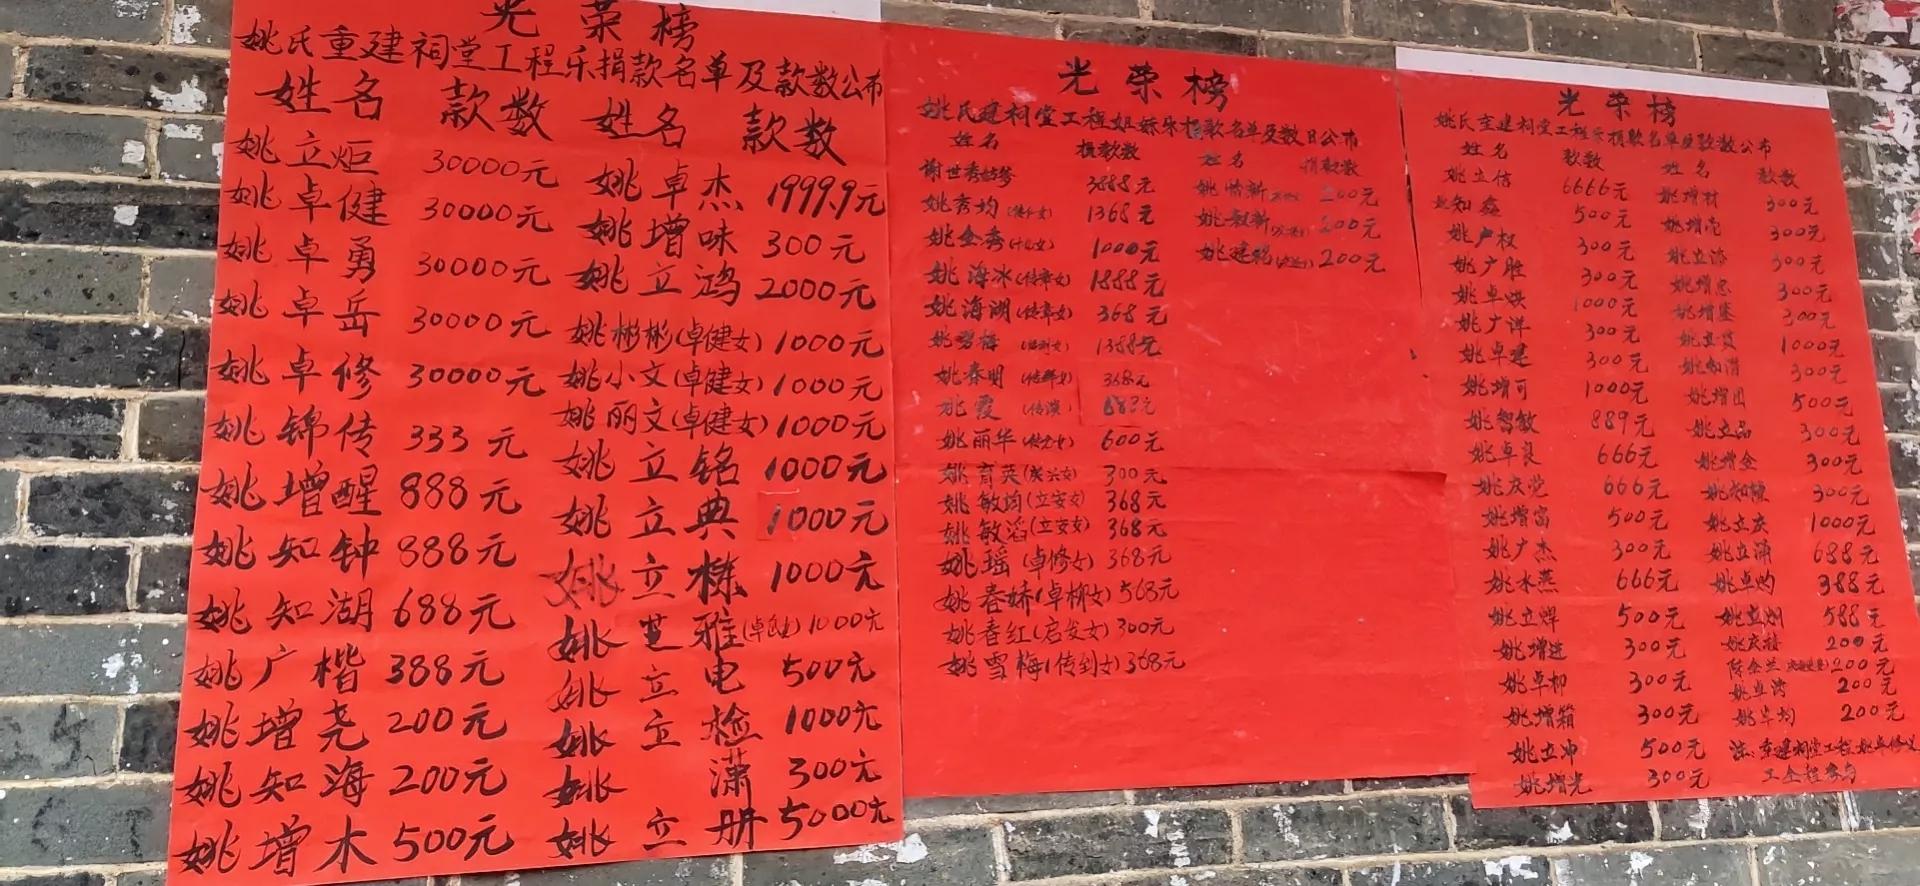 光荣榜
姚氏重建祠堂工程乐捐款名单及款数公布
姓名 款数 姓名 款数
姚立炬 30000元
姚卓健 30000元
姚卓勇 30000元
姚卓岳 30000元
姚卓修 30000元
姚锦传 333元
姚增醒 888元
姚知钟 888元
姚知湖 688元
姚广楷 388元
姚增尧 200元
姚知海 200元
姚增木 500元
姚卓杰 1999.9元
姚增味 300元
姚立鸿 2000元
姚彬彬(卓健女) 1000元
姚小文(卓健女) 1000元
姚丽文(卓健女) 1000元
姚立铭 1000元
姚立典 1000元
姚立栋 1000元
姚芝雅 1000元
姚立电 500元
姚立检 1000元
姚潇 300元
姚立册 5000元
光荣榜
姚氏建祠堂工程姐妹乐捐款名单及数目公布
姓名 捐款数 姓名 捐款数
谢世秀姑爹 3888元
姚秀均 1368元
姚金秀 1000元
姚海冰(传章女) 1888元
姚海湖(传章女) 368元
姚碧梅 1388元
姚春明 368元
姚霞
姚丽华 600元
姚育英 300元
姚敏均(立安女) 368元
姚敏滔(立安女) 368元
姚瑶(卓修女) 368元
姚春娇(卓柳女) 568元
姚春红(启发女) 300元
姚雪梅(传到女) 368元
200元
200元
200元
光荣榜
姚氏重建祠堂工程乐捐款名单及款数公布
姓名 款数 姓名 款数
姚立信 6666元
姚知鑫 500元
姚广权 300元
姚广胜 300元
姚卓烘 1000元
姚广洋 300元
姚卓建 300元
姚增可 1000元
姚智敏 889元
姚卓良 666元
姚庆党 666元
姚增富 500元
姚广杰 300元
姚水燕 666元
姚立焊 500元
姚增进 300元
姚卓柳 300元
姚增箱 300元
姚立冲 500元
姚增光 300元
姚增材 300元
姚增亮 300元
300元
姚增忠 300元
300元
1000元
300元
姚增田 500元
姚立品 300元
姚增金 300元
300元
姚立庆 1000元
姚立涌 688元
姚卓灼 388元
姚立炯 588元
200元
陈金兰 200元
姚卓湾 200元
姚卓均 200元
注:重建祠堂工程姚卓修义
工全程参与